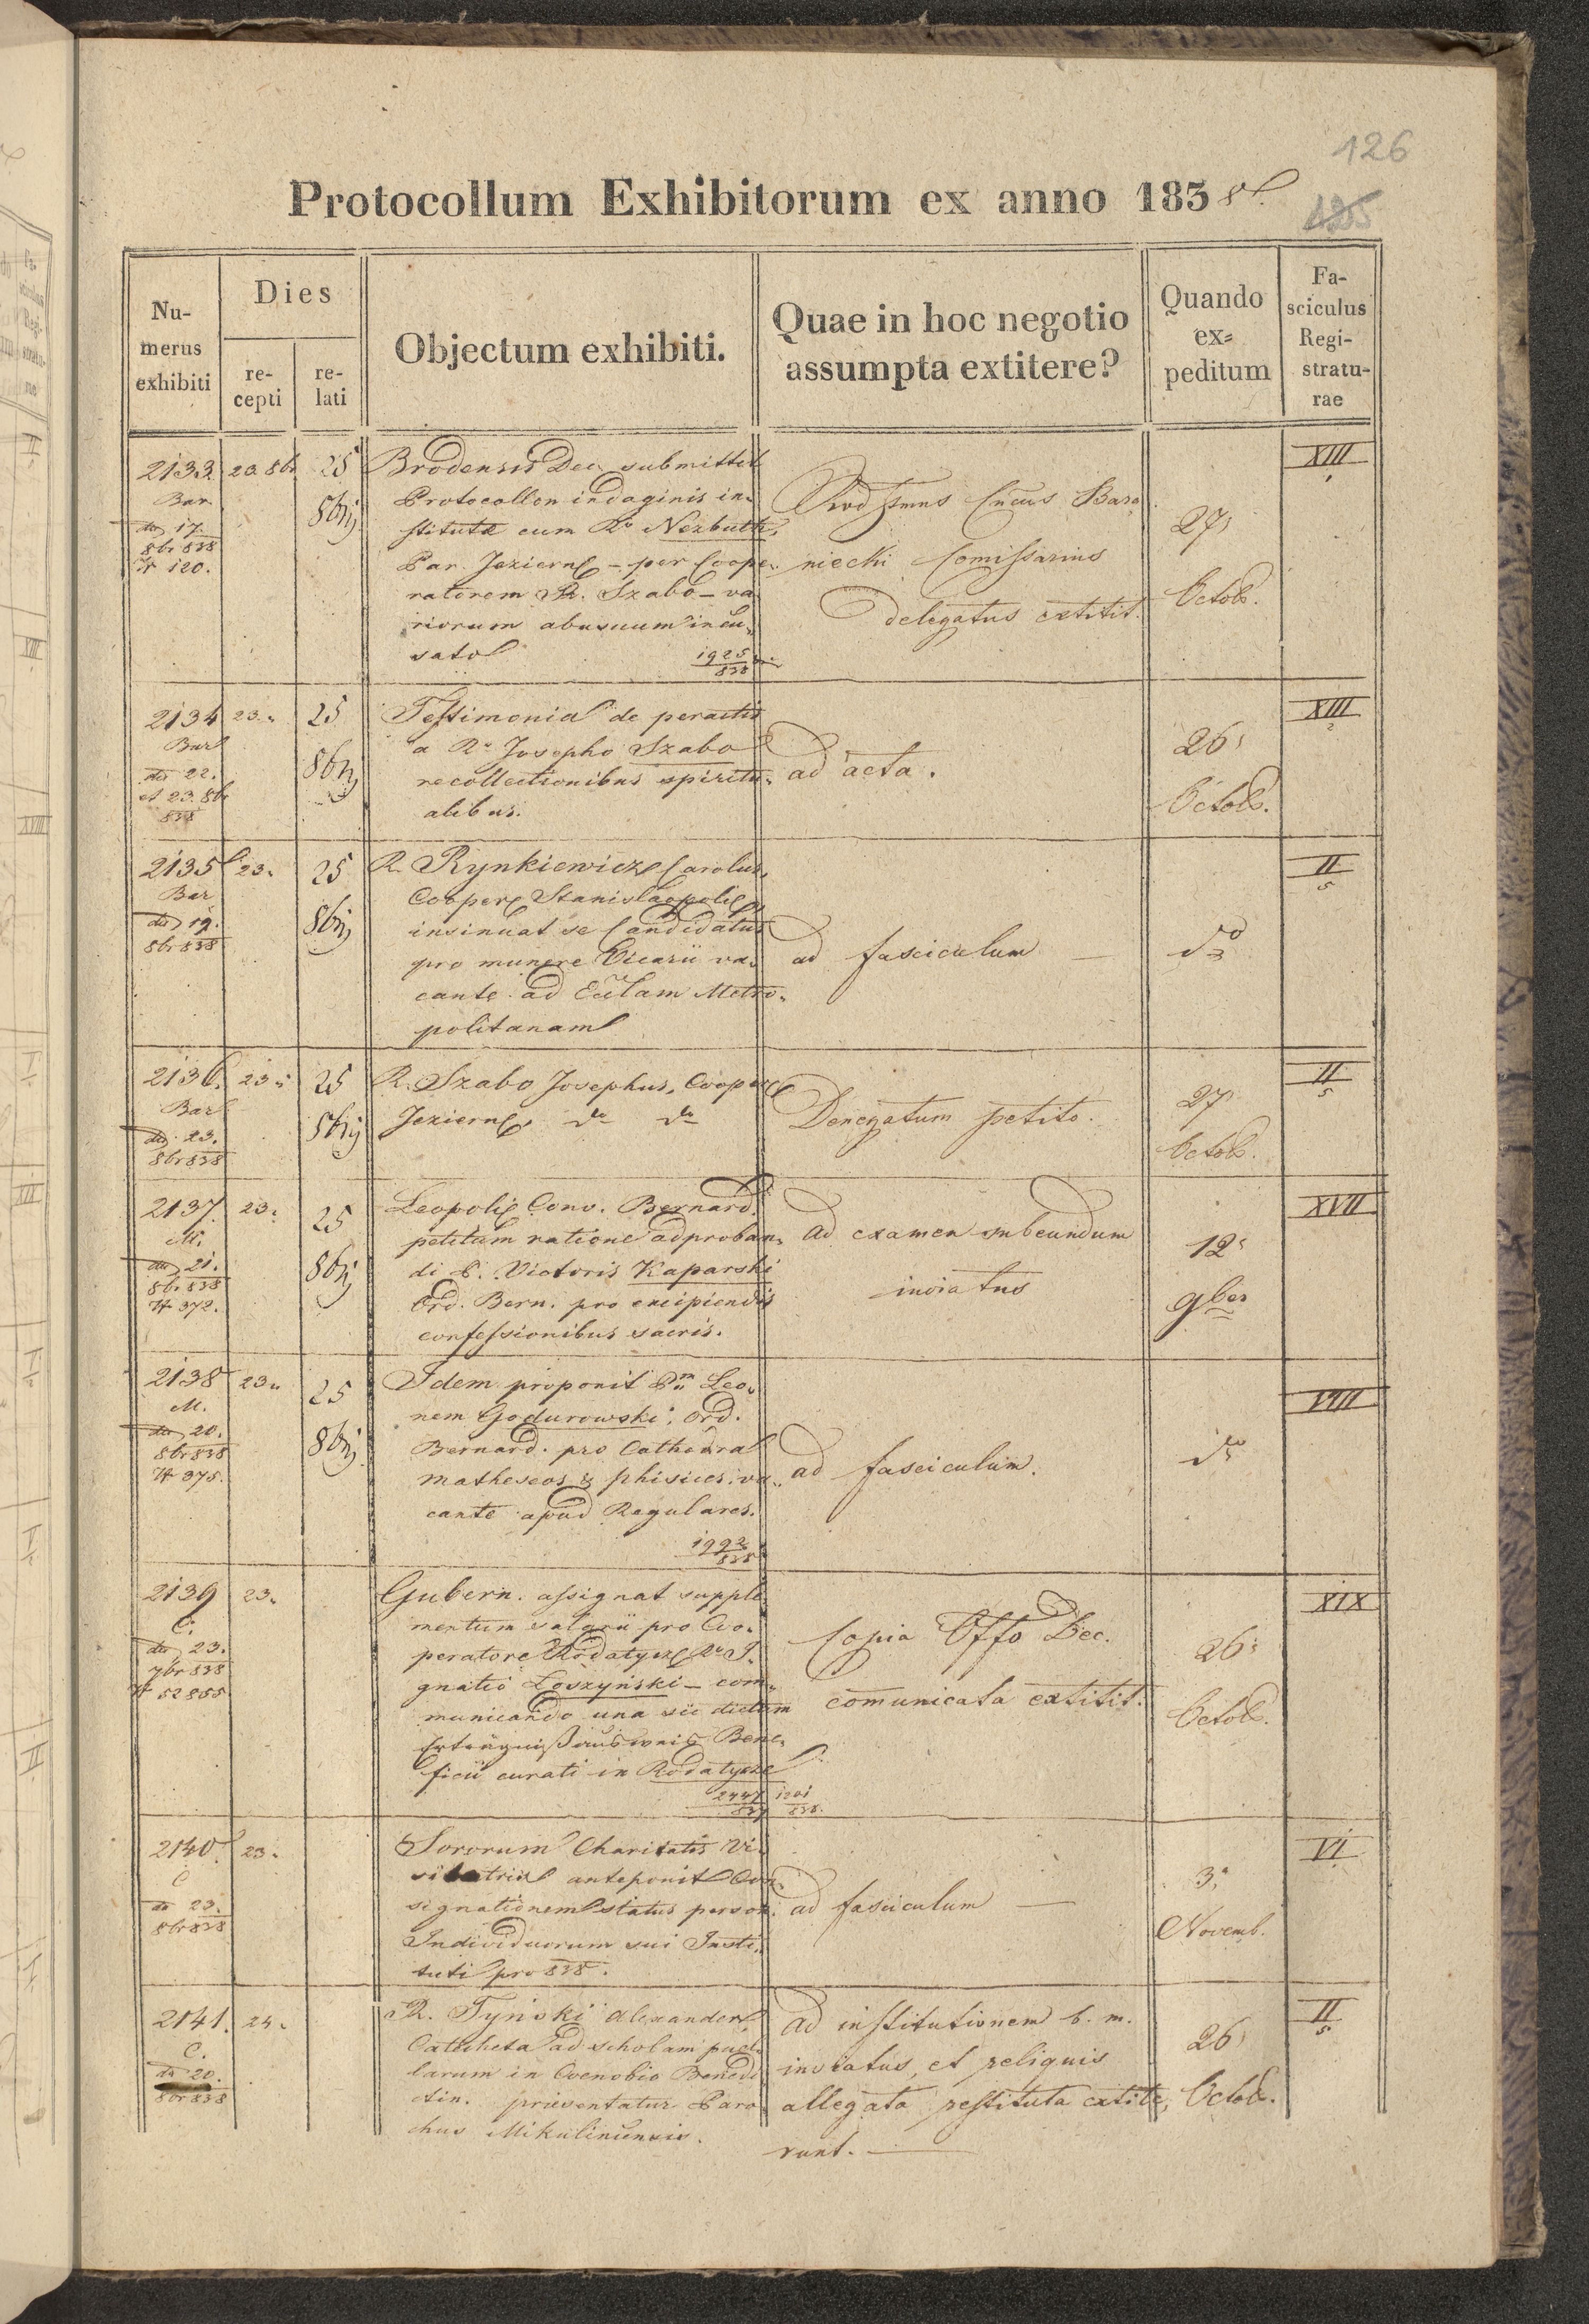 126
Protocollum Exhibitorum ex anno 1838
125
Nu-
merus
exhibiti
Dies
re-
cepti
re-
lati
Objectum exhibiti.
Quae in hoc negotio
assumpta extitere?
Quando
ex=
peditum
Fa-
sciculus
Regi-
stratu-
rae
2133. 23. 8br
Bar
dto 17.
8br 838
N 120.
25
8brij
Brodensis Dec. submittit
Protocollon indaginis in-
stitutæ cum Ro Nexbuth,
Par. Jezierne - per Coope-
ratorem R. Szabo - va-
riorum abusuum incu-
sato
1925
838
niecki Comissarius
delegatus extitit.
27
Octob.
XIII
2134 23.
Bar
dto 22.
et 23. 8br
838
25
8brij
Testimonia de peractis
a Ro Josepho Szabo
recollectionibus spiritu-
alibus.
ad acta.
26
Octob.
XIII
2
2135 23.
Bar
dto 19.
8br 838
25
8brij
R. Rynkiewicz Carolus,
Cooper Stanislaopolis
insinuat se Candidatus
pro munere Vicarii va-
cante ad Ecclam Metro-
politanam
ad fasciculum —
do
II
5
2136. 23.
Bar
dto 23.
8br 838
25
8brij
R. Szabo Josephus, Cooper
Jezierne, do do
Denegatum petito.
27
Octob.
II
5
2137. 23.
M.
dto 21.
8br 838
N 372.
25
8brij
Leopoli Conv. Bernard.
petitum ratione adproban-
di P. Victoris Kaparski
Ord. Bern. pro excipiendis
confessionibus sacris.
ad examen subeundum
inviatus
12
9ber
XVII
2138 23.
M.
dto 20.
8br 838
N 375.
25
8brij
Idem proponit Pm Leo-
nem Godurowski, Ord.
Bernard. pro Cathedra
matheseos & phisices va-
cante apud Regulares.
1992
838
ad fasciculum.
do
VIII
2139 23.
C.
dto 23.
7br 838
N 52855
Gubern. assignat supple-
mentum salarii pro Coo-
peratore Rodatycze Ro I-
gnatio Loszyński - com-
municando una sic dictum
Erträgnißausweis Bene-
ficii curati in Rodatycze
2447 1201
837 838.
Copia Offo Dec.
comunicata extitit.
26
Octob.
XIX
2140 23.
C
dto 23.
8br 838
Sororum Charitatis Vi-
sitatrix anteponit Con-
signationem status person.
Individuorum sui Insti-
tuti pro 838.
ad fasciculum —
3
Novemb.
VI
2141. 24.
C.
dto 20.
8br 838
R. Tyński Alexander
Catecheta ad scholam puel-
larum in Coenobio Benedi-
ctin. præsentatur Paro-
chus Mikulincensis.
ad institutionem b. m.
inviatus, et reliquis
allegata restituta extite-
runt. —
26
Octob.
II
5